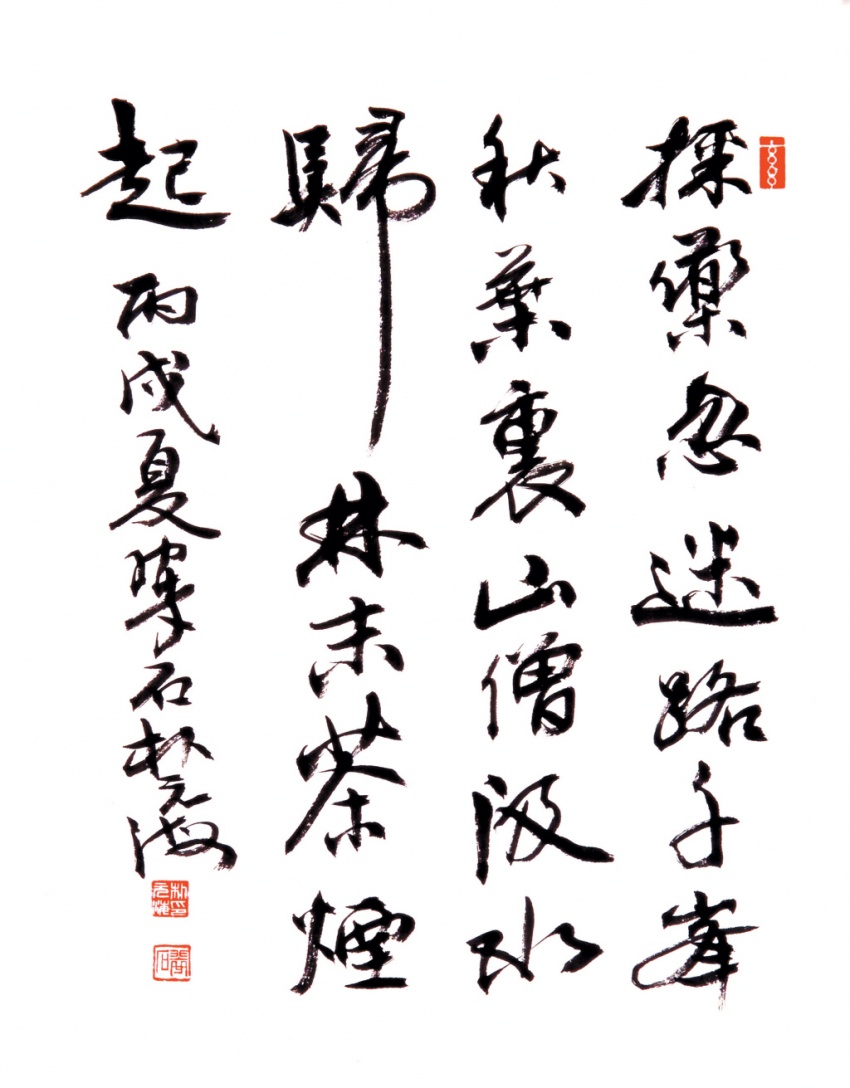 採藥忽迷路千峯
秋葉裏山僧汲水
歸林末茶煙
起 丙戌夏 石 朴元海